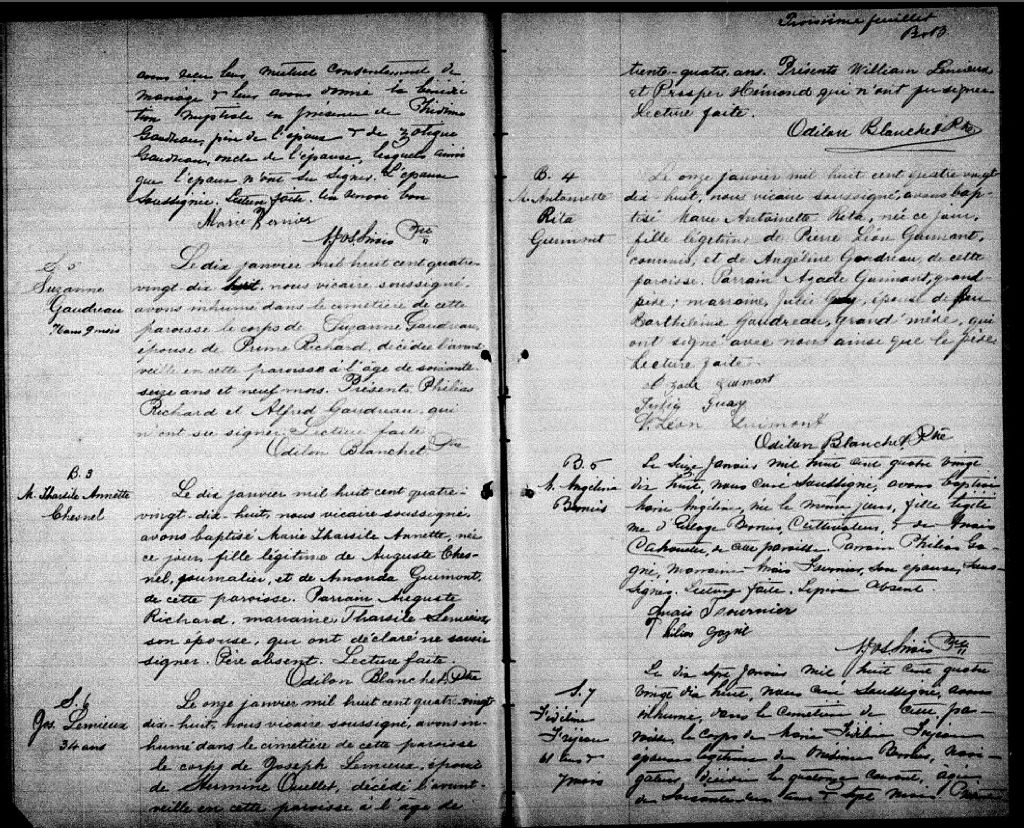 avons reçu leur mutuel consentement de
mariage & leur avons donné la bénédic
tion nuptiale en présence de
Gaudreau, père de l'époux & de Zotique
Gaudreau, oncle de l'épouse, lesquels ainsi
que l'époux n'ont su signer. L'épouse
soussignée. Lecture faite. bon
Marie Bernier
Ptre
S. 5
Suzanne
Gaudreau
76 ans 9 mois
Le dix janvier mil huit cent quatre-
vingt-dix huit, nous vicaire soussigné,
avons inhumé dans le cimetière de cette
paroisse le corps de Suzanne Gaudreau,
épouse de Prime Richard, décédée l'avant
veille en cette paroisse à l'âge de soixante
seize ans et neuf mois. Présents Philias
Richard et Alfred Gaudreau, qui
n'ont su signer. Lecture faite.
Odilon Blanchet Ptre
B. 3
M. Tharsile Annette
Chesnel
Le dix janvier mil huit cent quatre-
vingt-dix-huit, nous vicaire soussigné,
avons baptisé Marie Tharsile Annette, née
ce jour, fille légitime de Auguste Ches-
nel, journalier, et de Amanda Guimont,
de cette paroisse. Parrain Auguste
Richard, marraine Tharsile Lemieux,
son épouse, qui ont déclaré ne savoir
signer. Père absent. Lecture faite.
Odilon Blanchet, Ptre
S. 6
Jos. Lemieux
34 ans
Le onze janvier mil huit cent quatre vingt
dix-huit, nous vicaire soussigné, avons in-
humé dans le cimetière de cette paroisse
le corps de Joseph Lemieux, époux
de Hermine Ouellet, décédé l'avant-
veille en cette paroisse à l'âge de
Troisième feuillet
trente-quatre ans. Présents William Lemieux
et Prosper Hémond qui n'ont pu signer
Lecture faite.
Odilon Blanchet Ptre
B. 4
M. Antoinette
Rita
Guimont
Le onze janvier mil huit cent quatre vingt
dix-huit, nous vicaire soussigné, avons bap-
tisé Marie Antoinette Rita, née ce jour,
fille légitime de Pierre Léon Guimont,
commis, et de Angéline Gaudreau, de cette
paroisse. Parrain Azade Guimont, grand
père; marraine, Julie Guay, épouse de feu
Barthélémie Gaudreau, grand'mère, qui
ont signé avec nous ainsi que le père.
Lecture faite.
Azade Guimont
Guay
P. Léon Guimont
Odilon Blanchet, Ptre
B. 5
M. Angélina
Bernier
Le seize Janvier mil huit cent quatre vingt
dix huit, nous curé soussigné, avons baptisé
Marie Angélina, née le même jour, fille légiti
me d'Eloge Bernier, Cultivateur, & de Anaïs
de cette paroisse. Parrain Philias Ga-
gné, marraine Anaïs Fournier, son épouse, sous-
signés. Lecture faite. Le père absent.
Anais Fournier
Philias Gagné
Ptre
S. 7
61 ans &
7 mois
Le dix sept Janvier mil huit cent quatre
vingt dix huit, nous curé soussigné, avons
inhumé, dans le cimetière de cette pa-
roisse, le corps de Marie
épouse légitime de Bernier, navi-
gateur, décédée le quatorze courant, âgée
de soixante-un ans & sept mois.